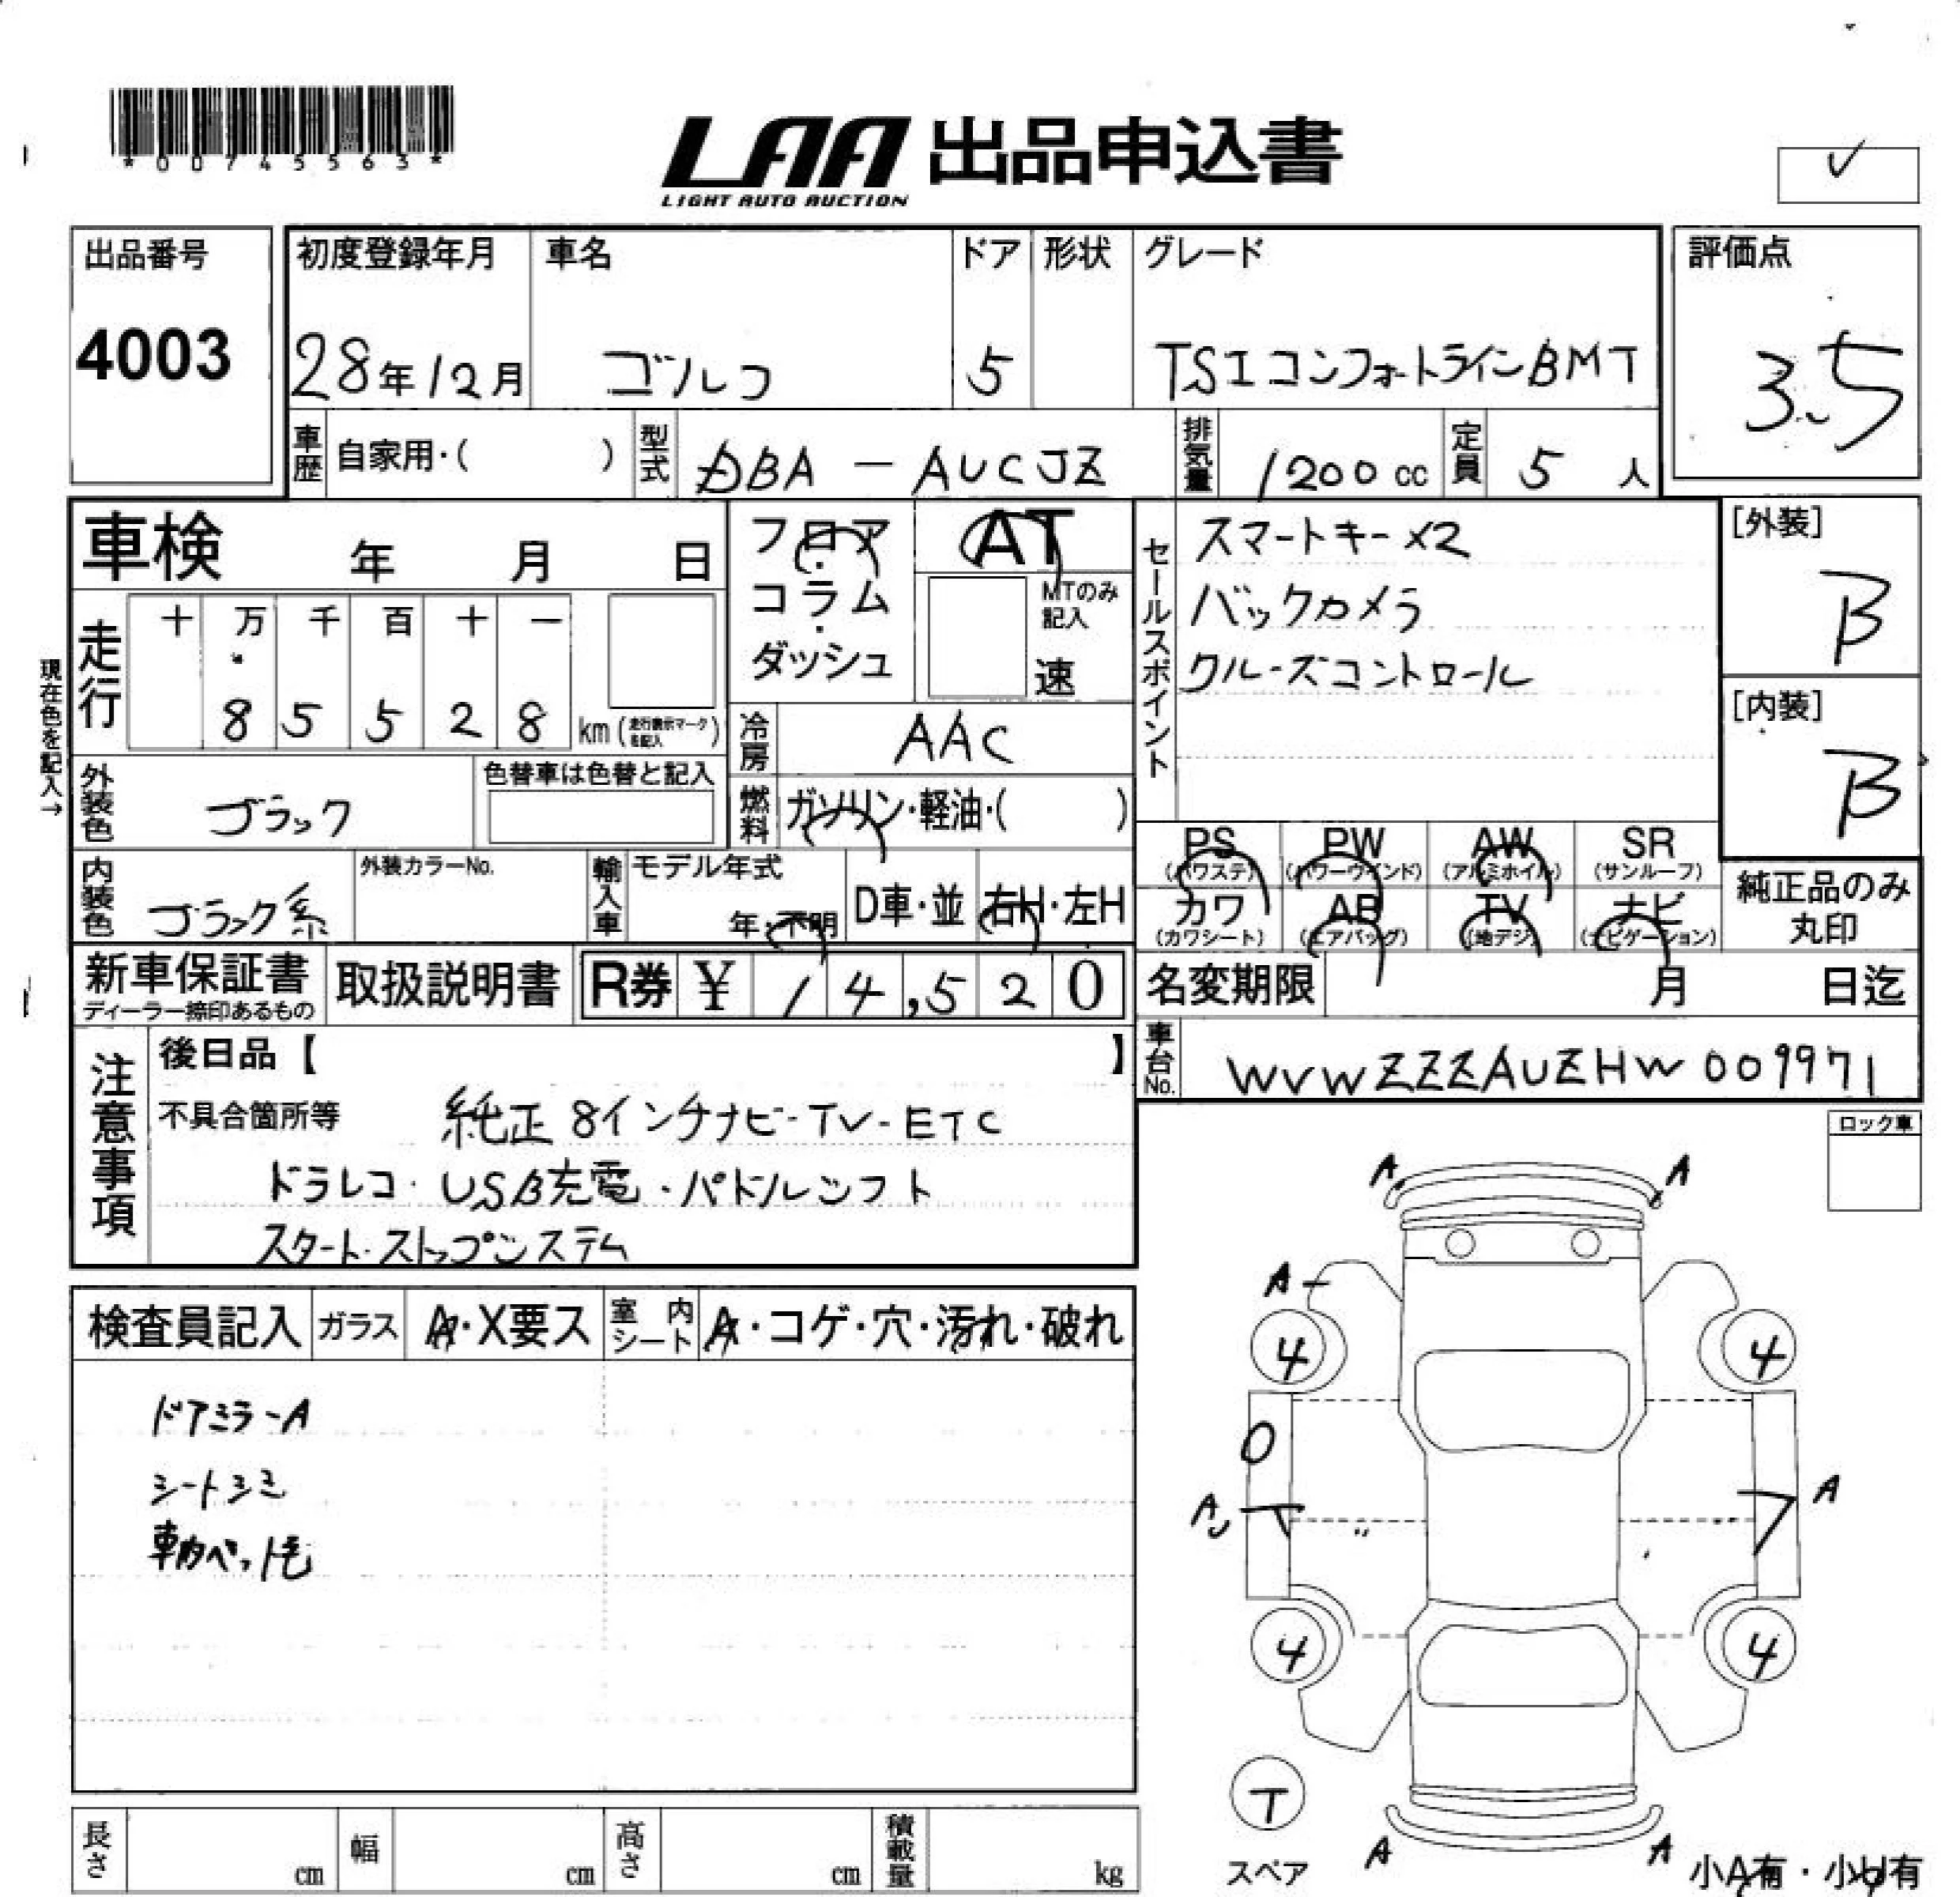 *00745563*
LAA 出品申込書
LIGHT AUTO AUCTION
出品番号
4003
初度登録年月
28年12月
車名
ゴルフ
ドア
5
形状
グレード
TSIコンフォートラインBMT
評価点
3.5
車歴 自家用・( )
型式 DBA-AUCJZ
排気量 1200cc
定員 5人
車検 年 月 日
走行 十 万 千 百 十 一
8 5 5 2 8 km (走行表示マークを記入)
現在色を記入→
フロア・コラム・ダッシュ
AT
MTのみ記入
速
冷房 AAC
燃料 ガソリン・軽油・( )
セールスポイント
スマートキー×2
バックカメラ
クルーズコントロール
[外装]
B
[内装]
B
外装色 ブラック
色替車は色替と記入
内装色 ブラック系
外装カラーNo.
輸入車 モデル年式
年・不明
D車・並
右H・左H
PS (パワステ)
PW (パワーウインド)
AW (アルミホイル)
SR (サンルーフ)
カワ (カワシート)
AB (エアバッグ)
TV (地デジ)
ナビ (ナビゲーション)
純正品のみ丸印
新車保証書
ディーラー捺印あるもの
取扱説明書
R券 ¥ 14,520
名変期限 月 日迄
車台No. WVWZZZAUZHW009971
注意事項
後日品【 】
不具合箇所等 純正8インチナビ-TV-ETC
ドラレコ・USB充電・パドルシフト
スタート・ストップシステム
ロック車
検査員記入 ガラス A・X要ス 室内シート A・コゲ・穴・汚れ・破れ
ドアミラーA
シートシミ
車内ペット毛
A A
A
4 4
A
A
4 4
T
スペア
A A
小A有・小U有
長さ cm 幅 cm 高さ cm 積載量 kg